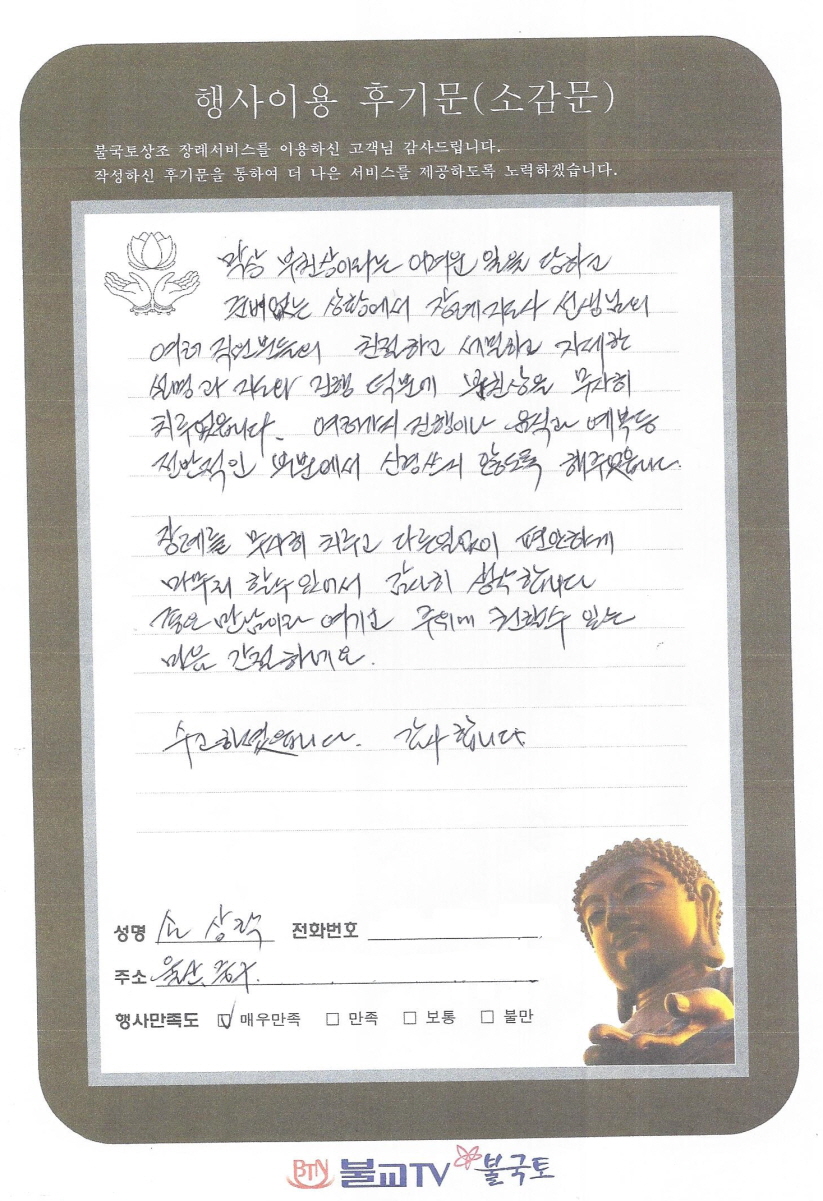 행사이용 후기문(소감문)
불국토상조 장례서비스를 이용하신 고객님 감사드립니다.
작성하신 후기문을 통하여 더 나은 서비스를 제공하도록 노력하겠습니다.
막상 부친상이라는 어려운 일을 당하고
경버없는 상황에서 장례지도사 선생님의
여러 직원분들의 친절하고 세밀하고 자세한
설명과 지도와 진행 덕분에 부친상을 무사히
치루었읍니다. 여러가지 진행이나 음식과 예복등
전반적인 부분에서 신경쓰지 않도록 해주었읍니다.
장례를 무사히 치루고 다른일없이 편안하게
마무리 할수 있어서 감사히 생각합니다
좋은 만남이라 여기고 주위에 권할수 있는
마음 간절하네요.
수고하셨읍니다. 감사합니다
성명 손상락 전화번호
주소 울산. 중구.
행사만족도 ☑ 매우만족 □ 만족 □ 보통 □ 불만
BTN 불교TV 불국토